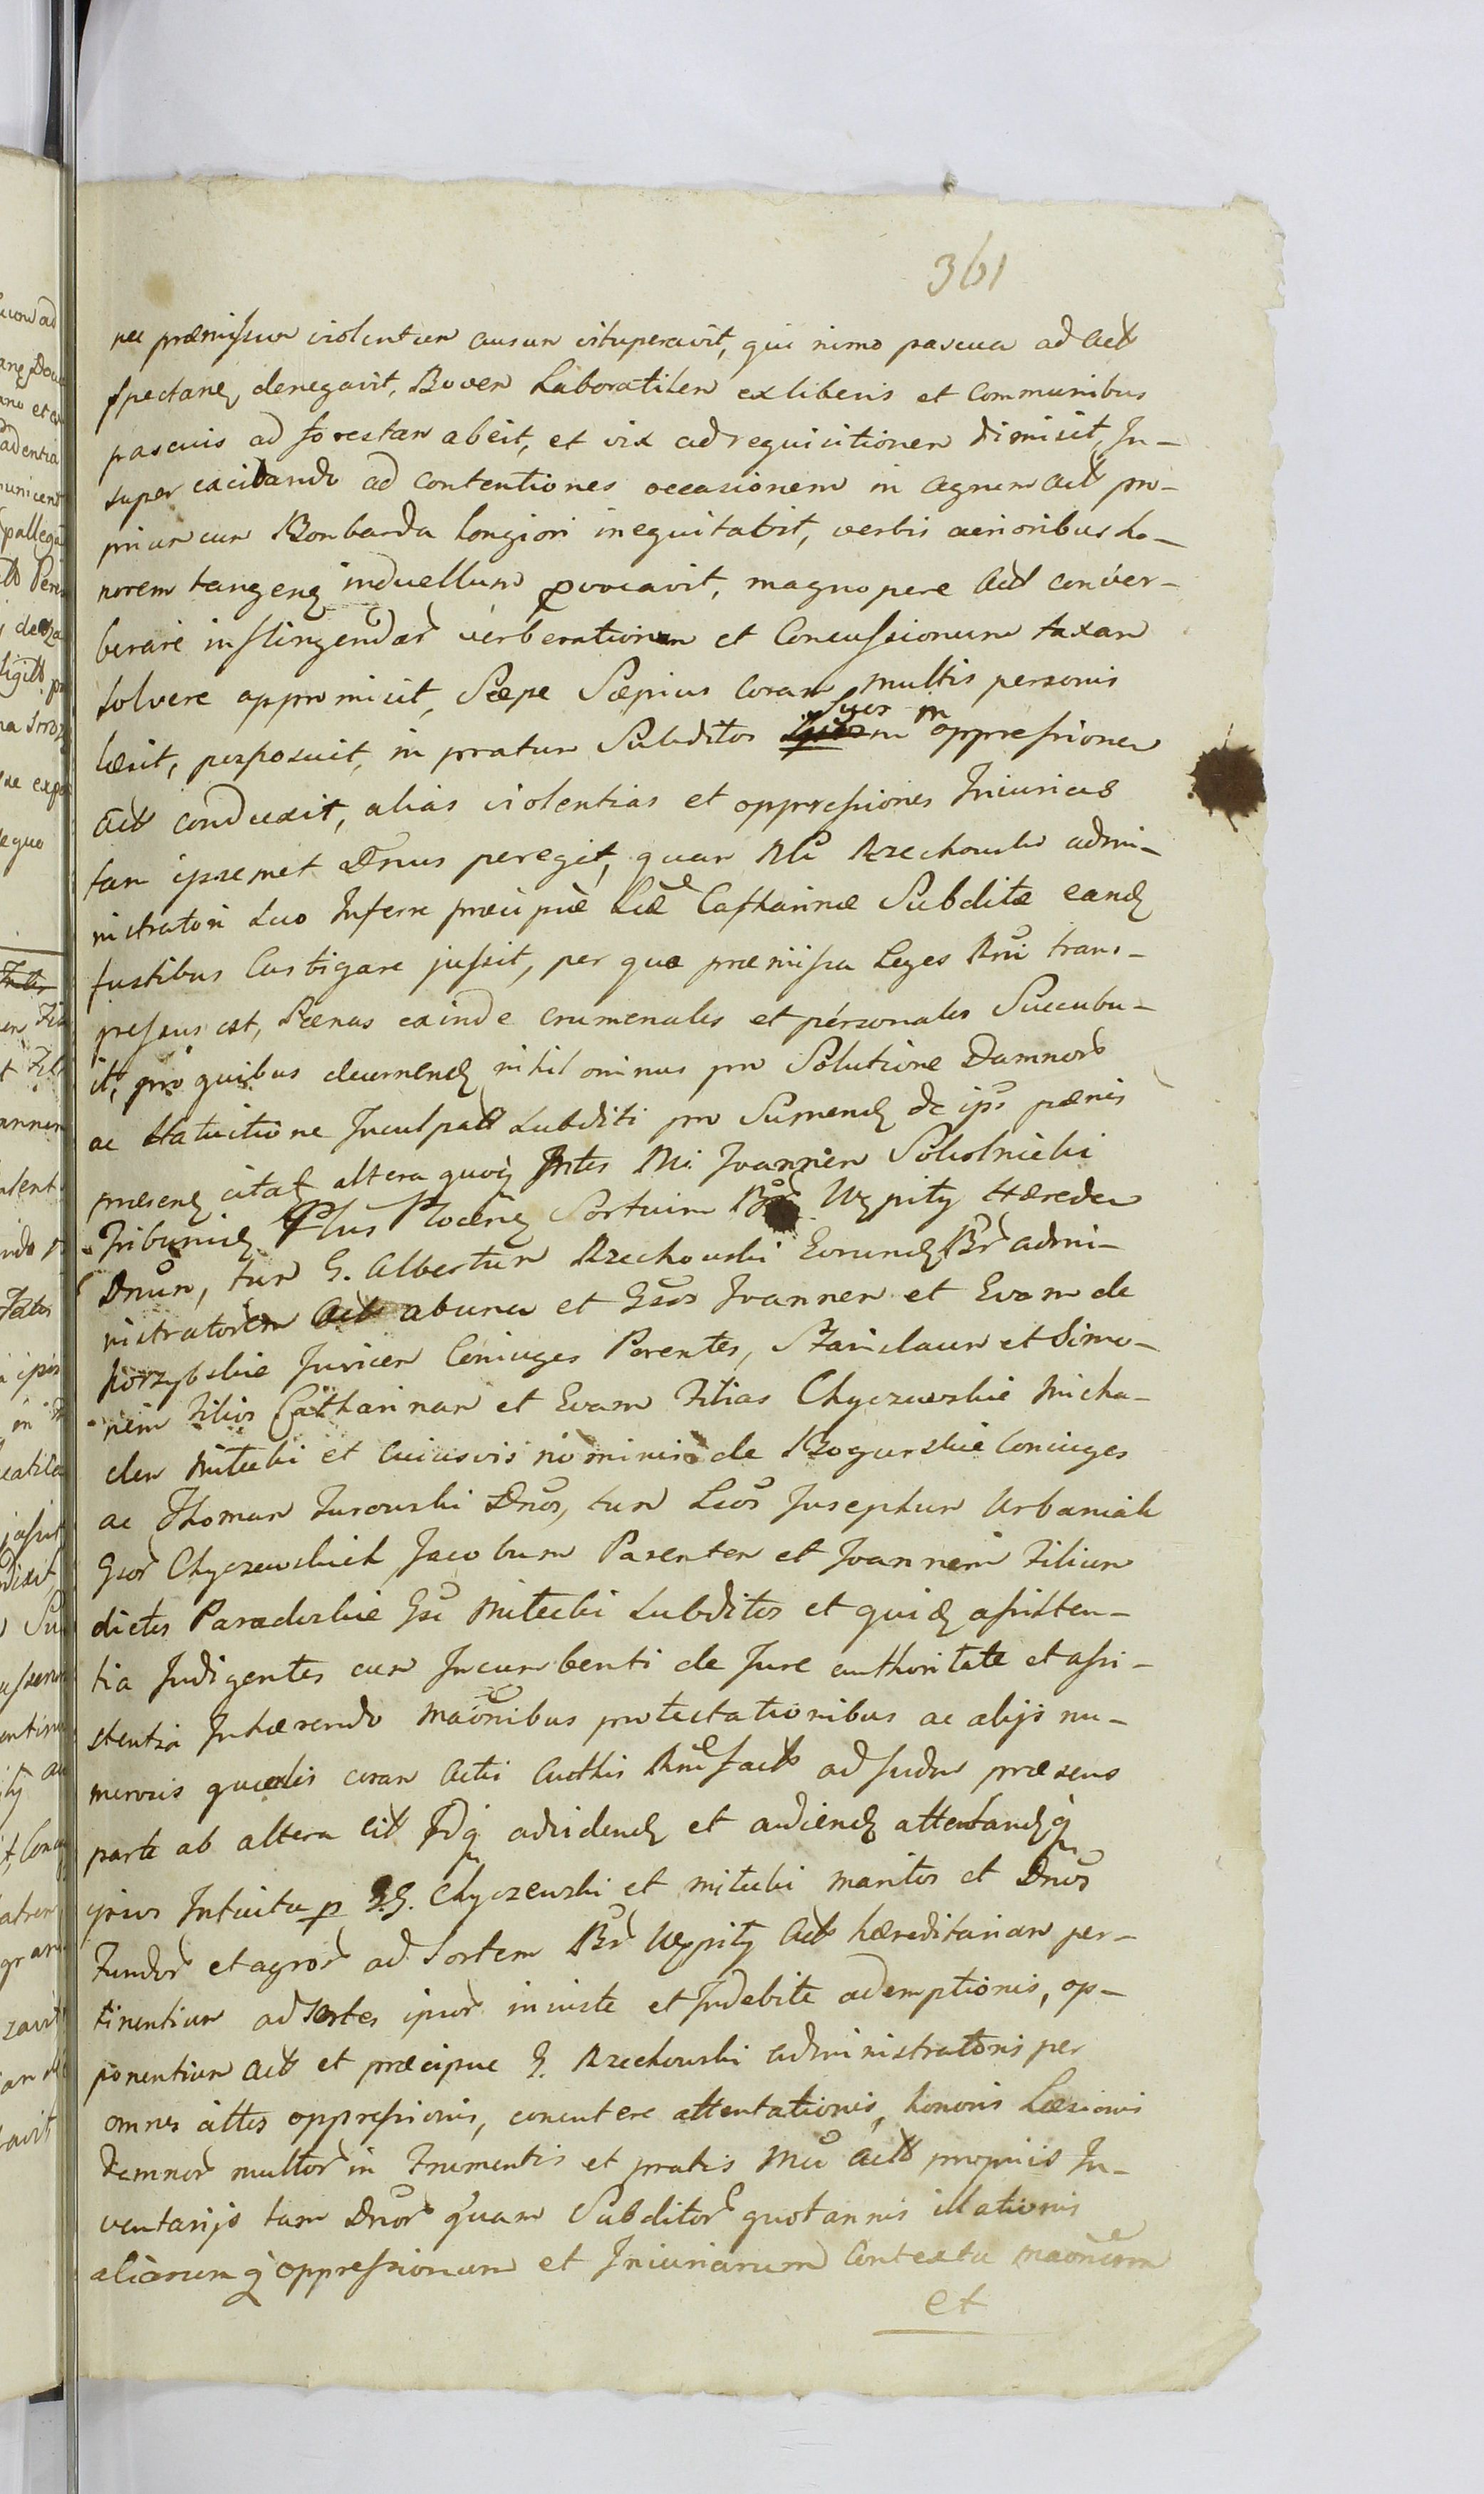 361
nec præmissum violentum ausum vituperavit, qui nimo pascua ad Act
spectanę denegavit, Bovem Laboratilem ex liberis et Communibus
pascuis ad forestam abeit, et vix ad requisitionem dimisit, In-
super excitando ad contentiones occasionem in agrum Act pro-
prium cum Bombarda longiori inequitabit, verbis acrioribus ho-
norem tangenę in duellum provocavit, magnopere Act conver-
berare infligendar verberationum et Concussionum taxam
solvere appromisit, Sæpe Sæpius coram multis personis
læsit, perposuit, in pratum Subditos Suos in oppressionem
Act conduxit, alias violentias et oppressiones Iniurias
tam ipsemet Dnus peregit, quam Rli Rzechowski admi-
nistratori suo Inferre præcipiè Læ Catharinæ Subditæ eandę
fustibus Castigare jussit, per quæ præmissa Leges Rni trans-
gressus est, Pænas exinde crumenales et personales Succubu-
it, pro quibus decernendę nihilominus pro Solutione Damnor
ac Statuitione Inculpatt Subditi pro Sumendę de ips pænis
præsenę citatę altera quoq Intes Mi Joannem Sokolnicki
Tribunidę Plus Plocenę Sortium Br Wypity Hæredem
Dnum, tum G. Albertum Rzechowski Eorundę Br admi-
nistratorem Act abuna et Gsos Joannem et Evam de
Korzybskie Juricem Coniuges Parentes, Stanislaum et Simo-
nem Filios Catharinam et Evam Filias Chyczewskie Micha-
elem Mitecki et cuiusvis nominis de Rogurskie Coniuges
ac Thomam Turowski Dnos, tum Leos Josephum Urbaniak
Gsor Chyczewskich Jacobum Parentem et Joannem Filium
dictos Paradoskie Gsi Mitecki Subditos et quidę assisten-
tia Indigentes cum Incumbenti de Jure authoritate et assi-
stentia Inhærendo maonibus protestationibus ac alijs nu-
merosis querelis coram Actis Cuthis Rni fact ad Judm præsens
parte ab altera cit Idq ad videndę et audiendę attentandęq
ipsos Intuitu p GG. Chyczewski et Mitecki maritos et Dnos
Fundor et agror ad Sortem Br Wypity Act hæreditariam per-
tinentium ad sortes ipsor iniuste et Indebite ademptionis, op-
ponentium Act et præcipue G. Rzechowski administratoris per
omnes actes oppressionis, concutere attentationis, honoris Læsionis
damnor multor in Frumentis et pratis Mti Act propriis In-
ventarijs tam Dnor quam Subditor quotannis illationis
aliarumq oppressionum et Iniuriarum Contextu maonum
et